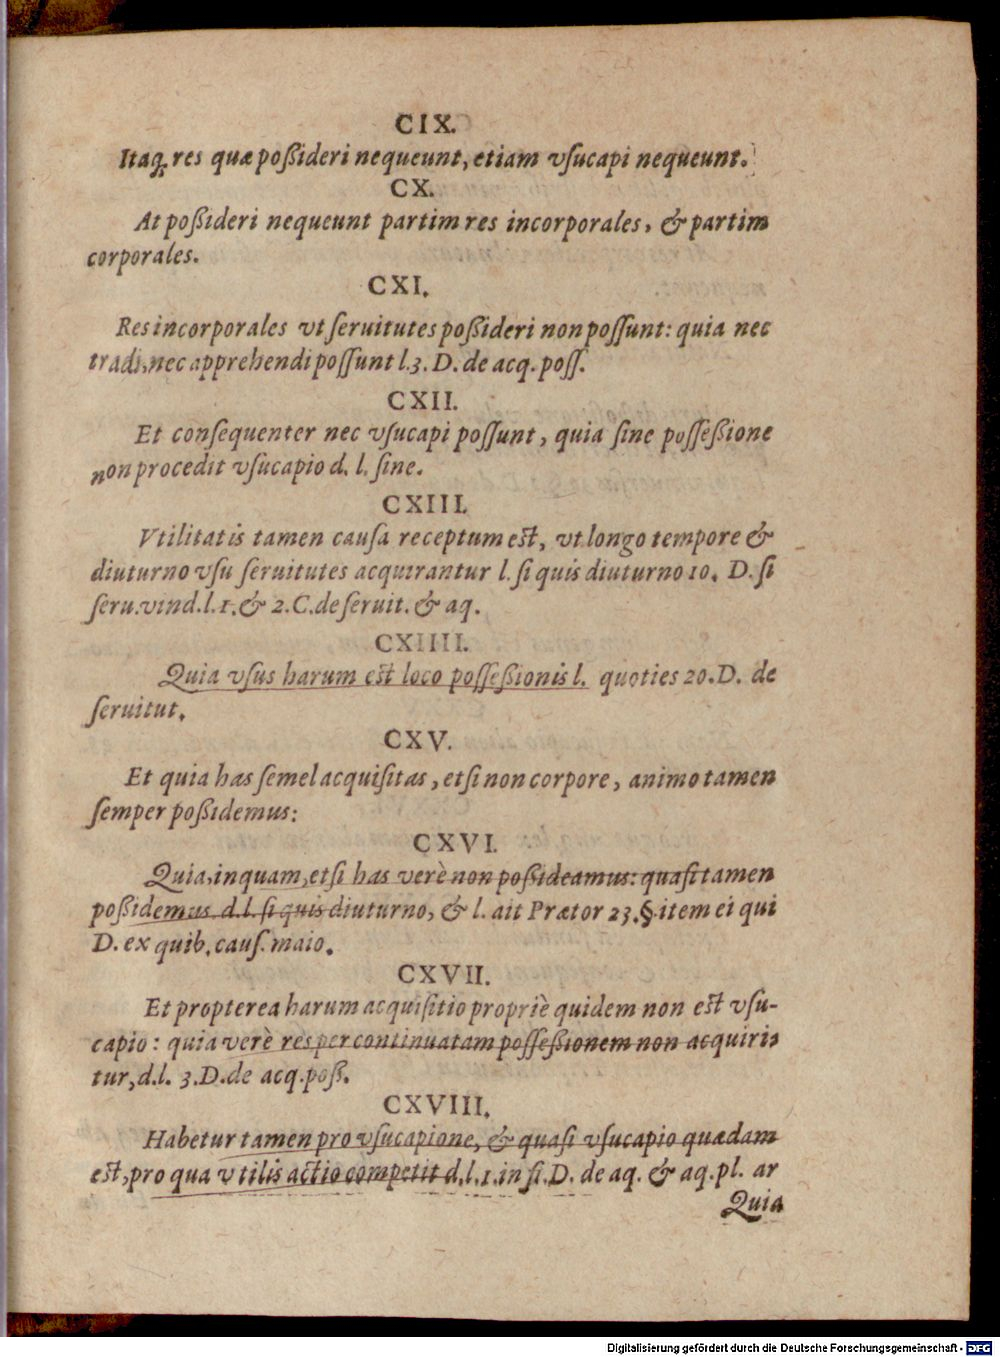 CIX.
Itaq; res quæ poßideri nequeunt, etiam vsucapi nequeunt.
CX.
At poßideri nequeunt partim res incorporales, & partim
corporales.
CXI.
Res incorporales vt seruitutes poßideri non possunt: quia nec
tradi, nec apprehendi possunt l. 3. D. de acq. poss.
CXII.
Et consequenter nec vsucapi possunt, quia sine posseßione
non procedit vsucapio d. l. sine.
CXIII.
Vtilitatis tamen causa receptum est, vt longo tempore &
diuturno vsu seruitutes acquirantur l. si quis diuturno 10. D. si
seru. vind. l. 1. & 2. C. de seruit. & aq.
CXIIII.
Quia vsus harum est loco posseßionis l. quoties 20. D. de
seruitut.
CXV.
Et quia has semel acquisitas, etsi non corpore, animo tamen
semper poßidemus:
CXVI.
Quia, inquam, etsi has verè non poßideamus: quasi tamen
poßidemus d. l. si quis diuturno, & l. ait Prætor 23. § item ei qui
D. ex quib. caus. maio.
CXVII.
Et propterea harum acquisitio propriè quidem non est vsu-
capio: quia verè res per continuatam posseßionem non acquiri-
tur, d. l. 3. D. de acq. poß.
CXVIII.
Habetur tamen pro vsucapione, & quasi vsucapio quædam
est, pro qua vtilis actio competit d. l. 1. in fi. D. de aq. & aq. pl. ar
Quia
Digitalisierung gefördert durch die Deutsche Forschungsgemeinschaft - DFG